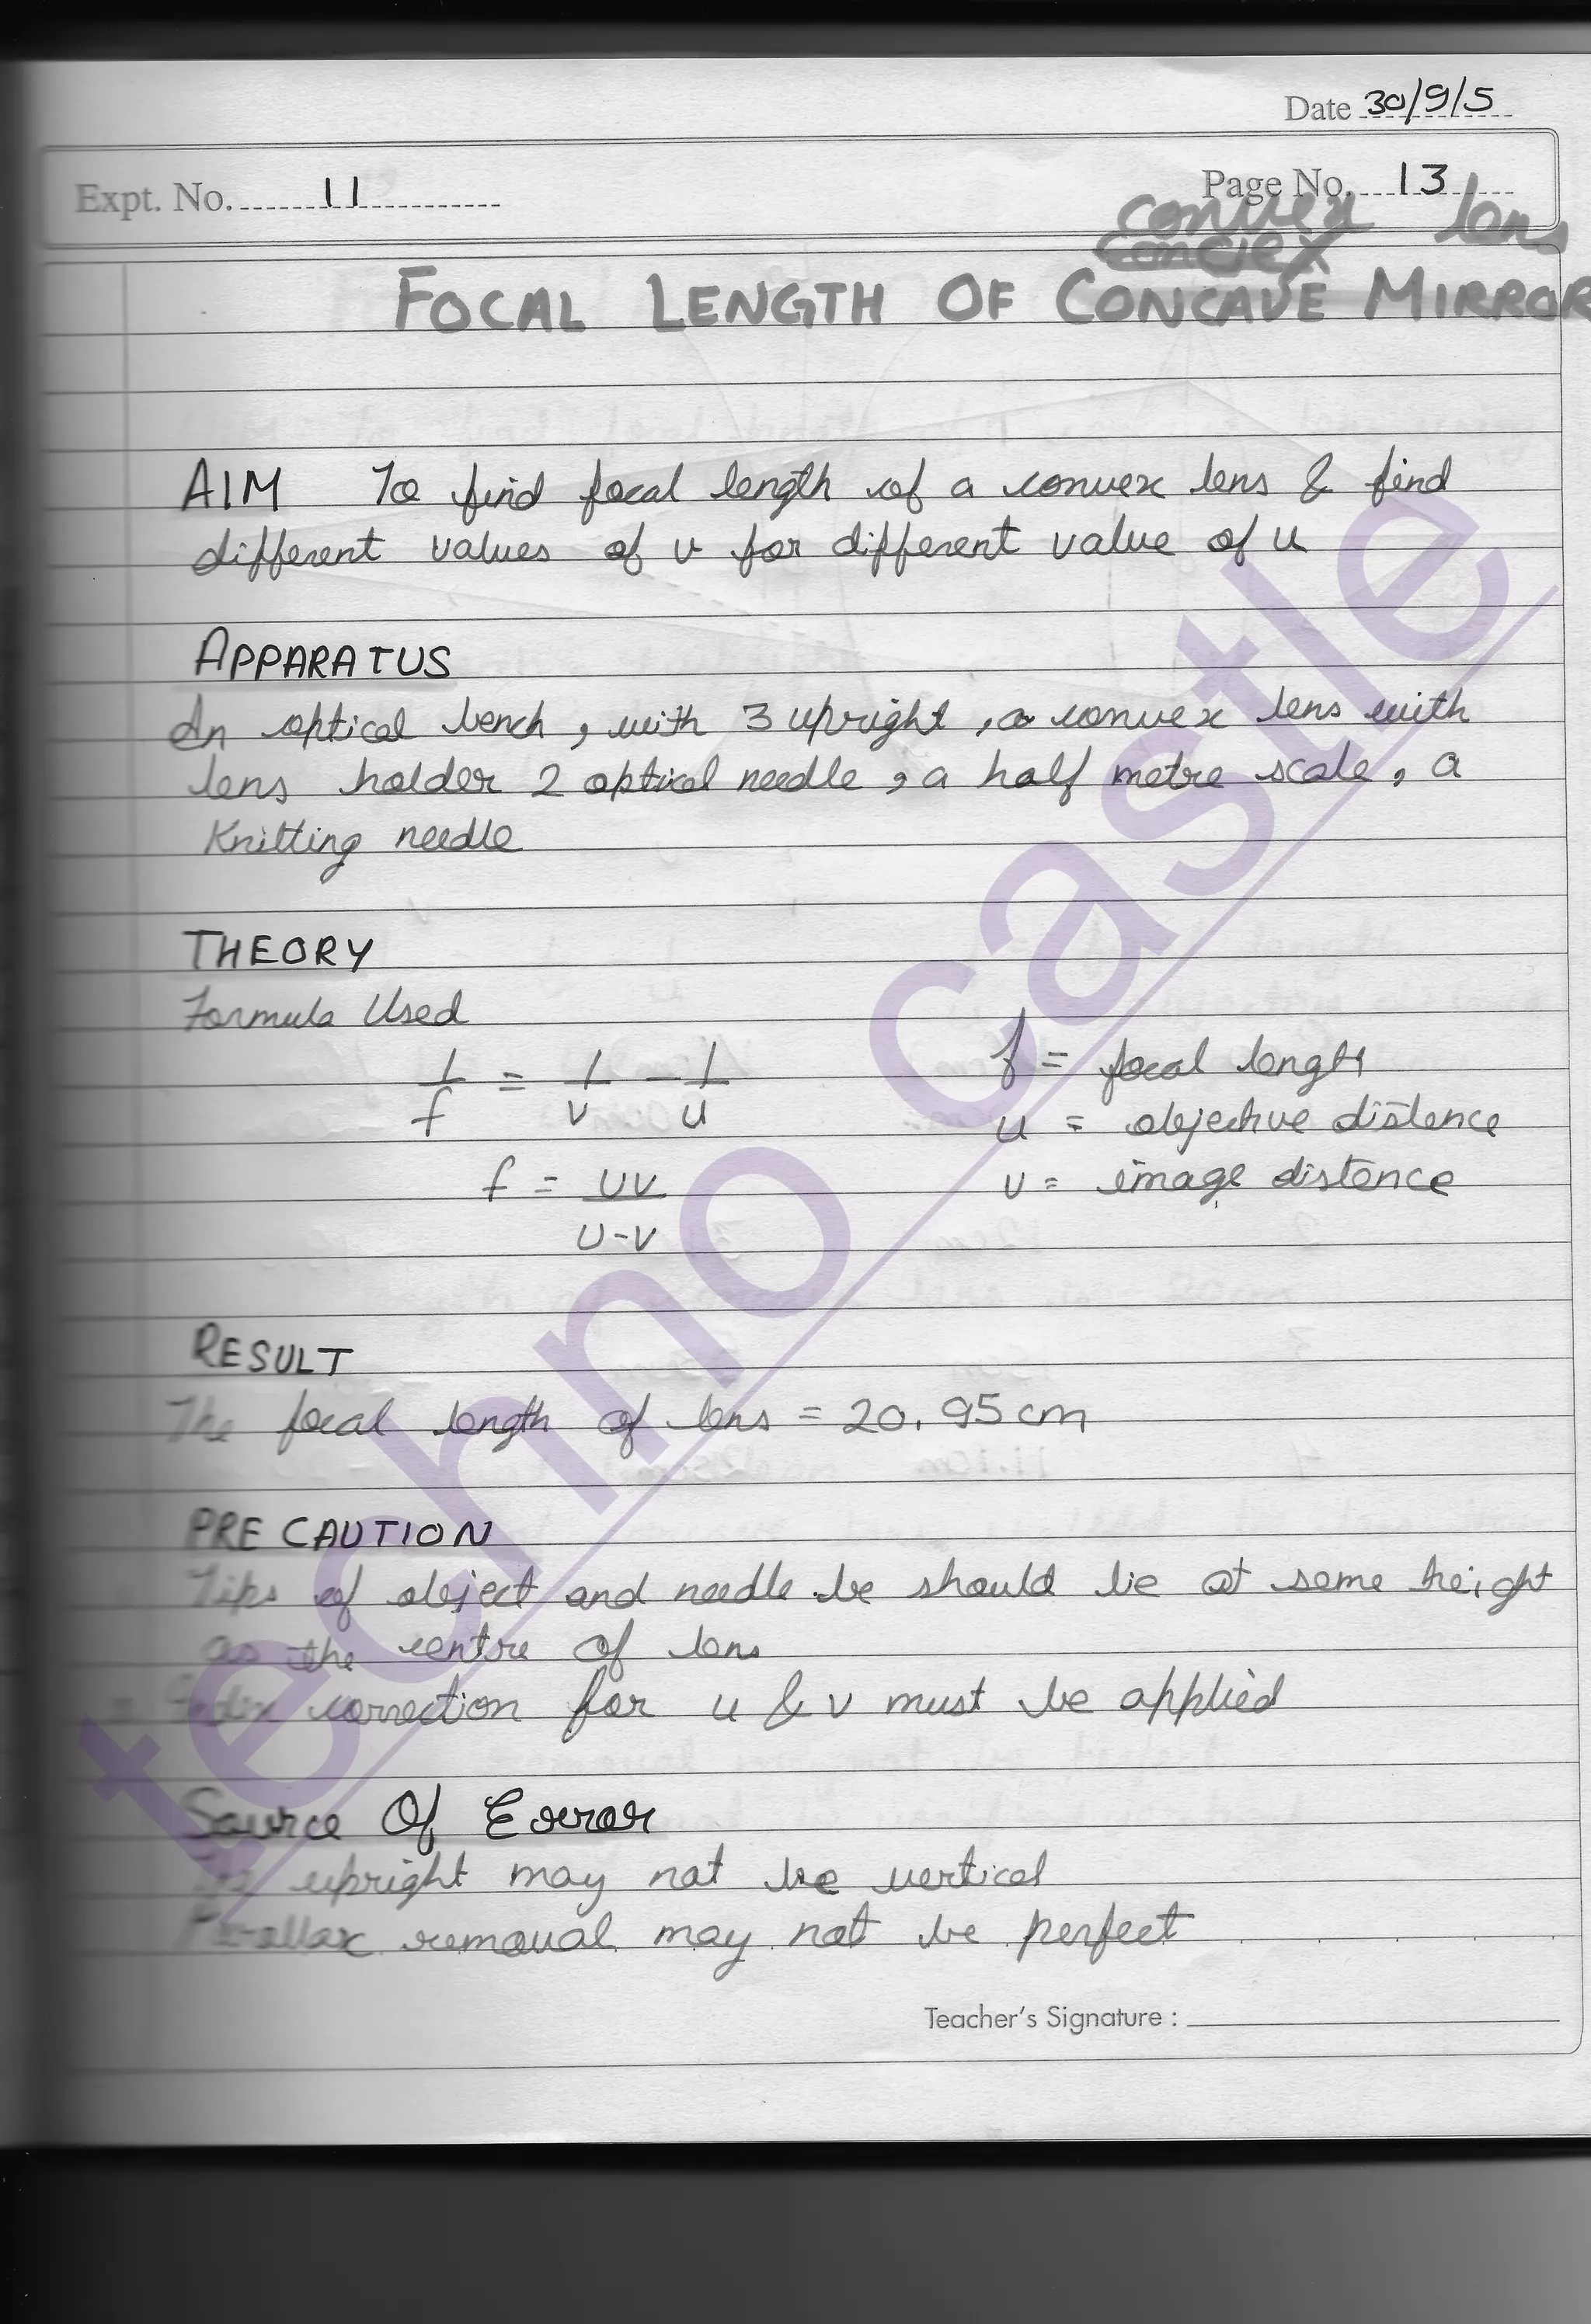 Date 30/9/5
Expt. No. 11
Page No. 13
convex lens
convex
FOCAL LENGTH OF CONCAVE MIRROR
AIM To find focal length of a convex lens & find
different values of v for different value of u
APPARATUS
An optical bench, with 3 upright, a convex lens with
lens holder 2 optical needle, a half metre scale, a
Knitting needle
THEORY
Formula Used
1/f = 1/v - 1/u
f = focal length
u = objective distence
f = uv/u-v
v = image distence
RESULT
The focal length of lens = 20.95cm
PRECAUTION
Tips of object and needle be should lie at same height
as the centre of lens
Index correction for u & v must be applied
Source Of Error
upright may not be vertical
Parallax removal may not be perfect
Teacher's Signature :
techno castle